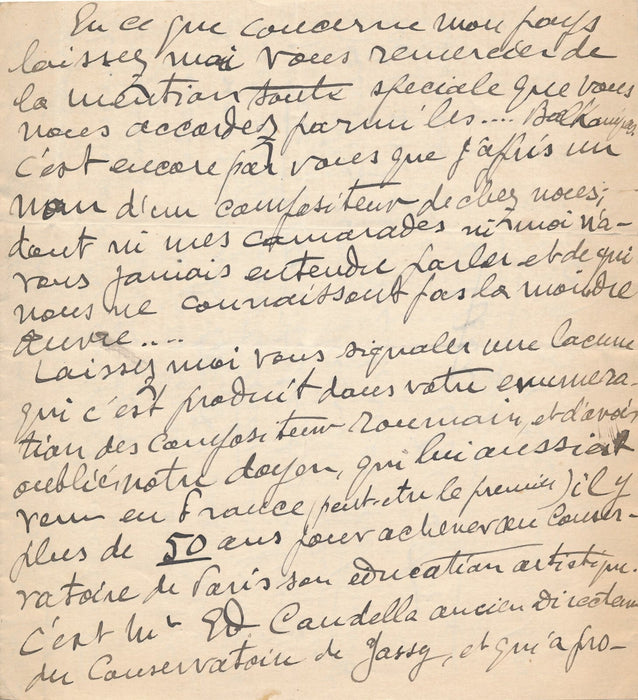 En ce que concerne mon pays
laissez moi vous remercier de
la mention toute speciale que vous
nous accordez parmi les.... Balkaniques
c'est encore par vous que j'apris un
nom d'un compositeur de chez nous,
dont ni mes camarades ni moi n'a-
vons jamais entendu parler et de qui
nous ne connaissont pas la moindre
œuvre....
Laissez moi vous signaler une lacune
qui c'est produit dans votre enumera-
tion des compositeur roumain, et d'avoir
oublié notre doyen, qui lui aussi est
venu en France, (peut-etre le premier) il y
plus de 50 ans pour achever au Conser-
vatoire de Paris son education artistique.
c'est Mr Ed. Caudella ancien Directeur
du Conservatoire de Jassy, et qui a pro-